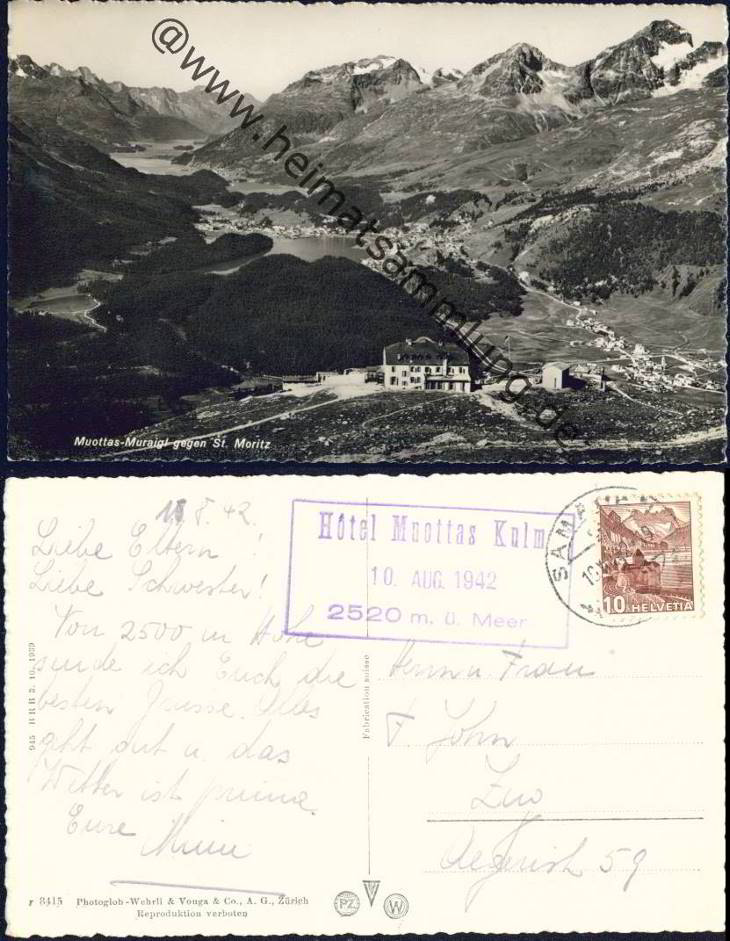 @www.heimatsammlung.de
Muottas-Muraigl gegen St. Moritz
8.42.
Liebe Eltern!
Liebe Schwester!
Von 2500 m Höhe
sende ich Euch die
besten Grüsse. Alles
geht gut u. das
Wetter ist prima.
Eure
Hôtel Muottas Kulm
10. AUG. 1942
2520 m. ü. Meer
10 HELVETIA
Herrn u. Frau
F. John
59
945 BRB 3. 10. 1939
Fabrication suisse
8415 Photoglob-Wehrli & Vouga & Co., A. G., Zürich
Reproduktion verboten
PZ W